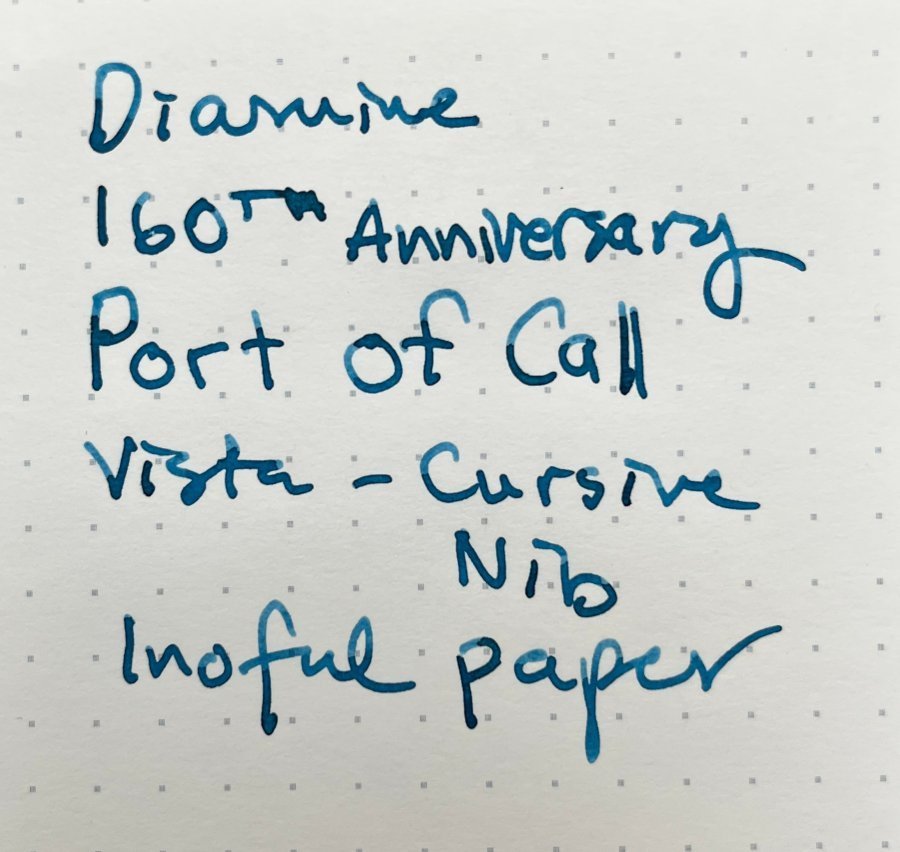 Diamine
160TH Anniversary
Port of Call
Vista - Cursive
Nib
Inoful paper